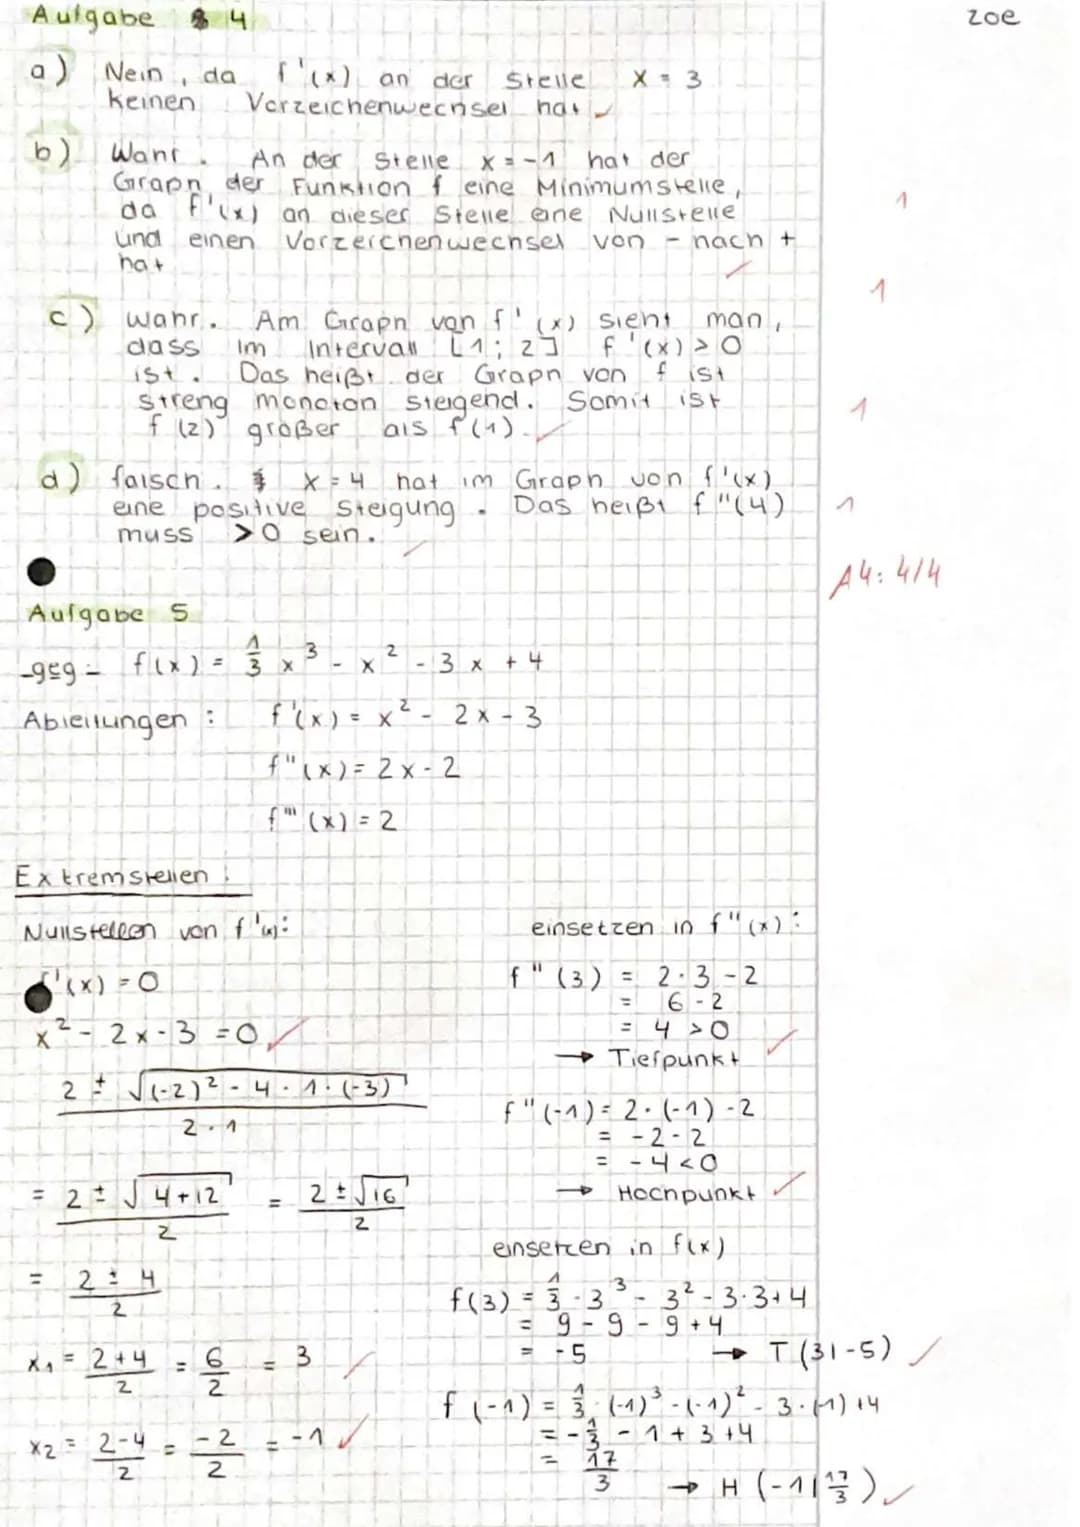 Aufgabe 4
zoe
a) Nein, da f'(x) an der Stelle x = 3
keinen Vorzeichenwechsel hat
b) Wahr. An der Stelle x = -1 hat der
Graph der Funktion f eine Minimumstelle,
da f'(x) an dieser Stelle eine Nullstelle
1
und einen Vorzeichenwechsel von - nach +
hat
1
c) wahr. Am Graph von f'(x) sieht man,
dass im Intervall [1; 2] f'(x) > 0
ist. Das heißt der Graph von f ist
streng monoton steigend. Somit ist
1
f(2) größer als f(1).
d) falsch. x = 4 hat im Graph von f'(x)
eine positive Steigung. Das heißt f"(4)
1
muss > 0 sein.
A4: 4/4
Aufgabe 5
geg - f(x) = 1/3 x³ - x² - 3x + 4
Ableitungen : f'(x) = x² - 2x - 3
f"(x) = 2x - 2
f'''(x) = 2
Extremstellen :
Nullstellen von f'(x):
f'(x) = 0
x² - 2x - 3 = 0
2 ± √((-2)² - 4 · 1 · (-3)) / 2 · 1
= 2 ± √(4 + 12) / 2 = 2 ± √16 / 2
= 2 ± 4 / 2
x₁ = 2+4 / 2 = 6/2 = 3
x₂ = 2-4 / 2 = -2/2 = -1
einsetzen in f"(x):
f"(3) = 2 · 3 - 2
= 6 - 2
= 4 > 0
→ Tiefpunkt
f"(-1) = 2 · (-1) - 2
= -2 - 2
= -4 < 0
→ Hochpunkt
einsetzen in f(x)
f(3) = 1/3 · 3³ - 3² - 3 · 3 + 4
= 9 - 9 - 9 + 4
= -5 → T (3|-5)
f(-1) = 1/3 · (-1)³ - (-1)² - 3 · (-1) + 4
= -1/3 - 1 + 3 + 4
= 17/3
→ H (-1|17/3)